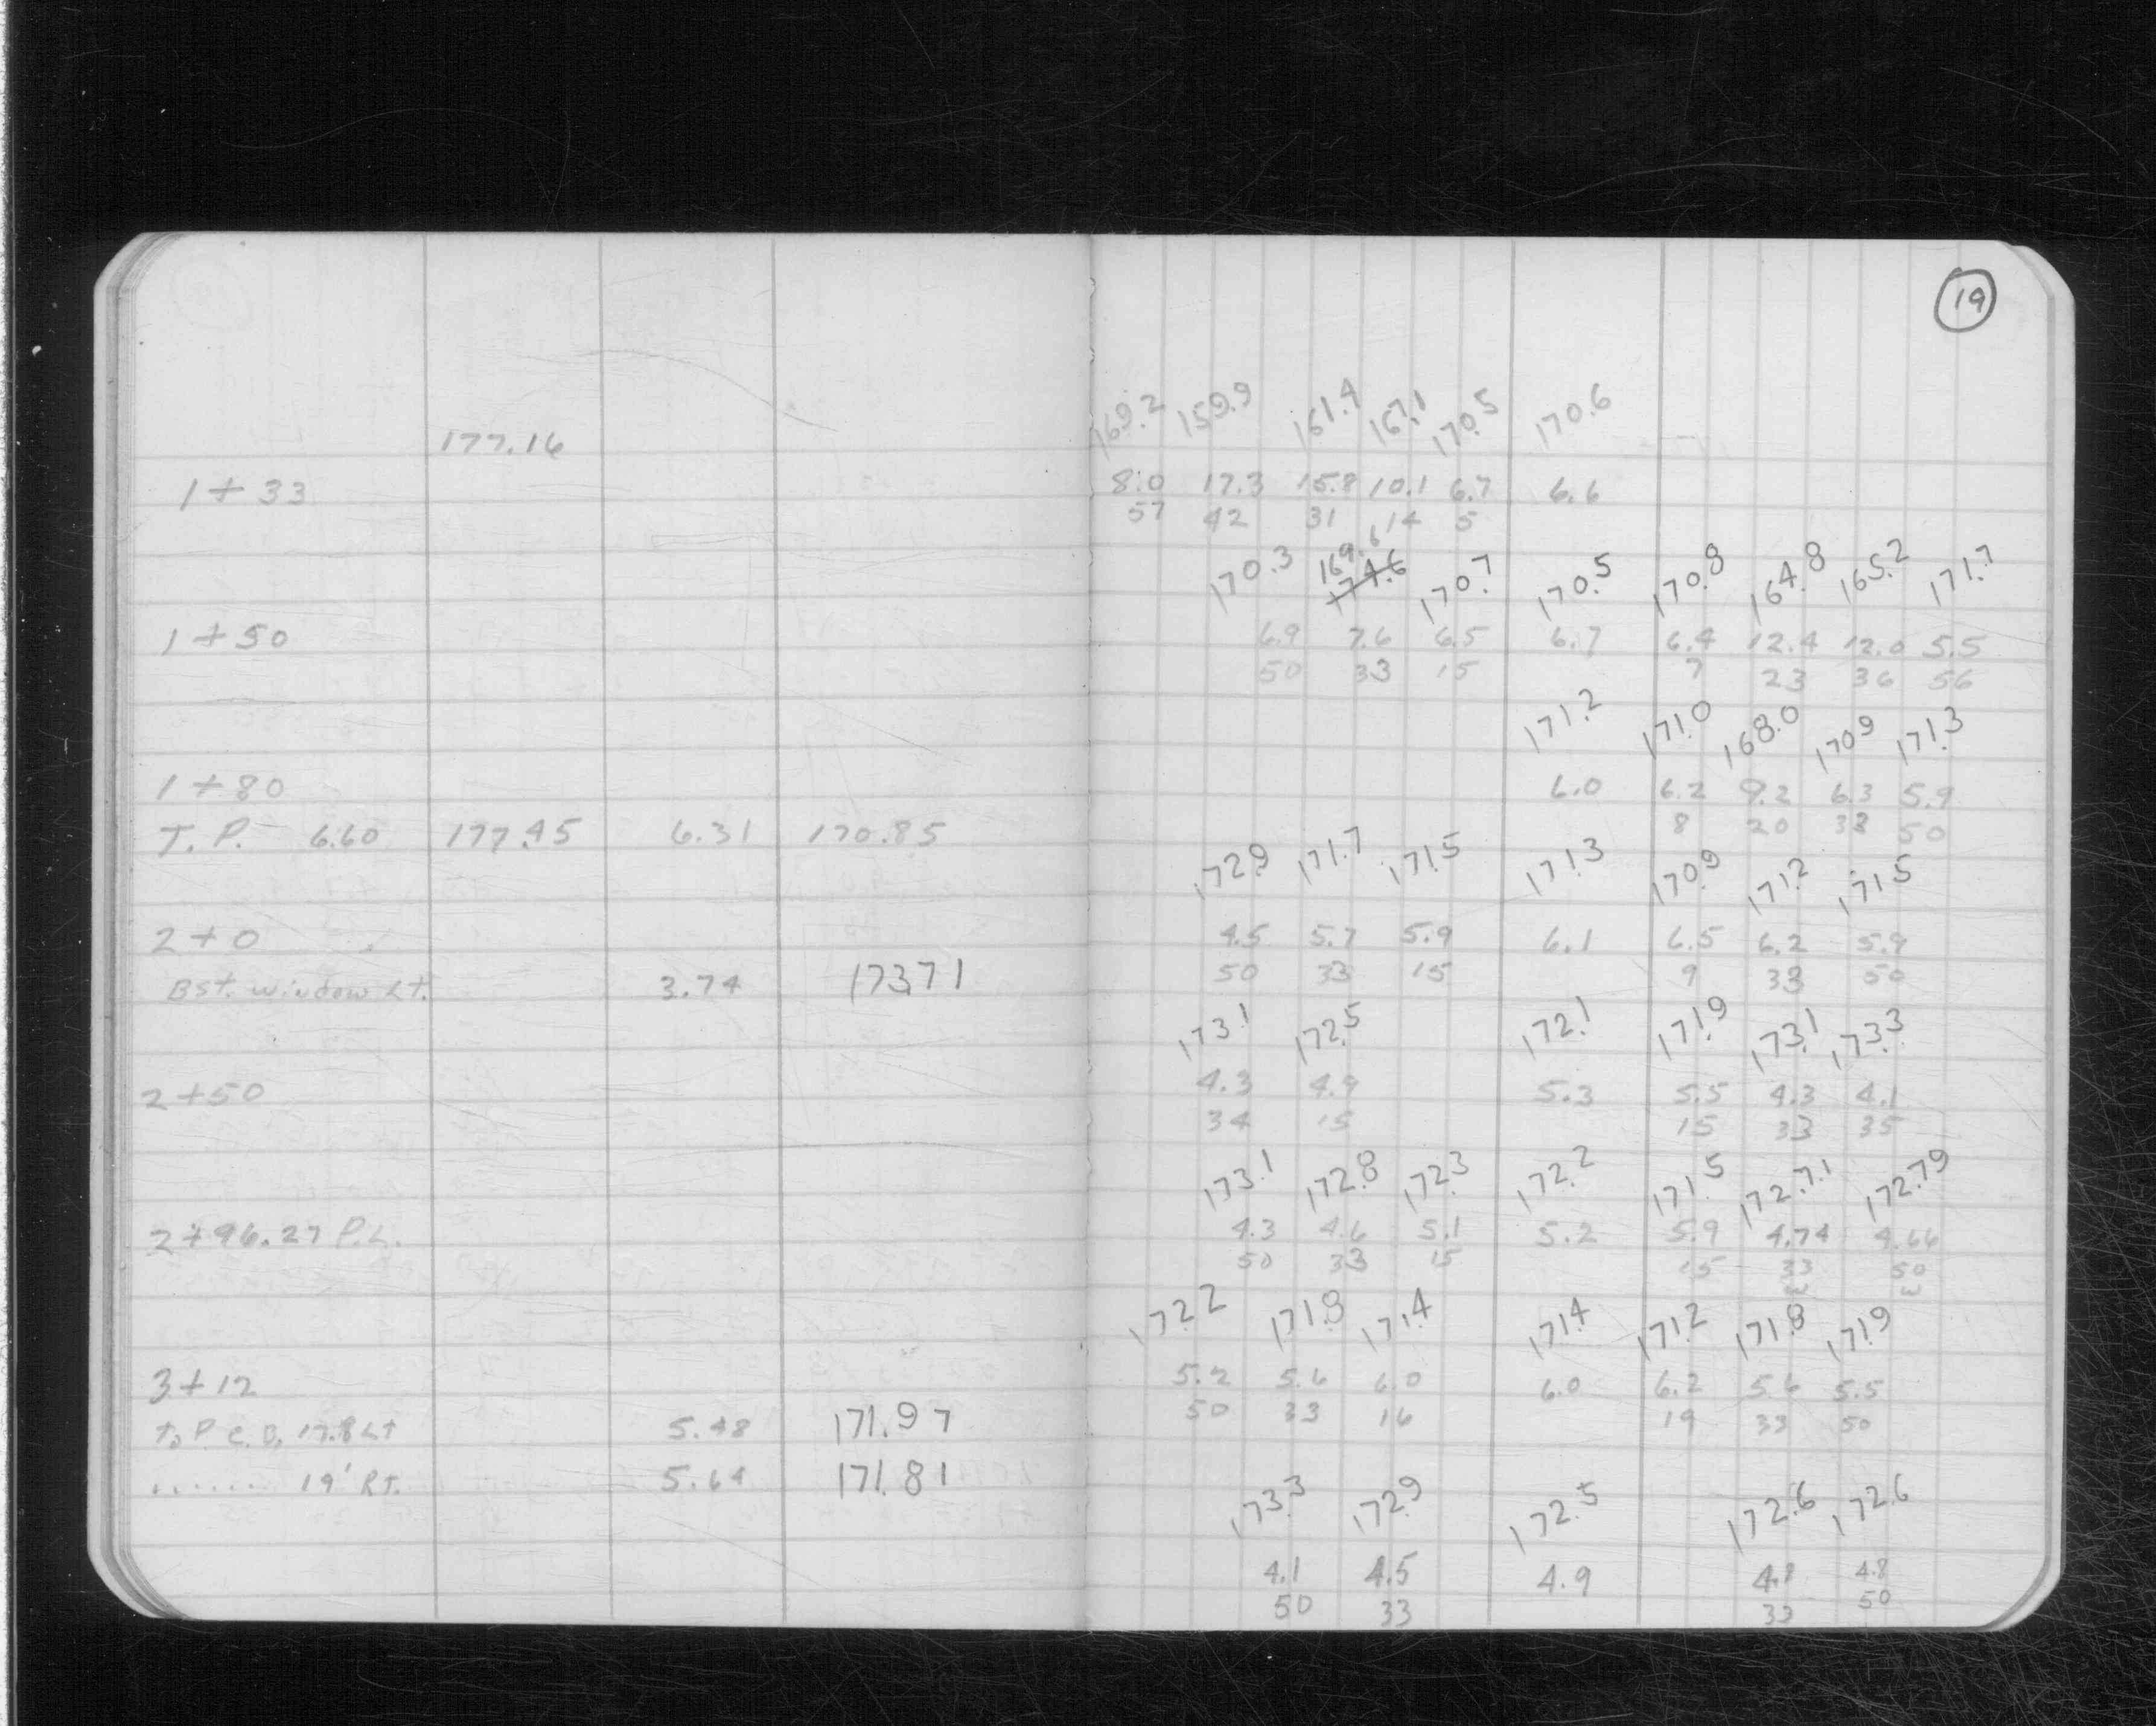 19
169.2 159.9 161.4 167.1 170.5 170.6
177.16
1+33 8.0 17.3 15.8 10.1 6.7 6.6
57 42 31 14 5
169.6
170.3 174.6 170.7 170.5 170.8 164.8 165.2 171.7
1+50 6.9 7.6 6.5 6.7 6.4 12.4 12.0 5.5
50 33 15 7 23 36 56
171.2 171.0 168.0 170.9 171.3
1+80 6.0 6.2 9.2 6.3 5.9
T.P. 6.60 177.45 6.31 170.85 8 20 33 50
172.9 171.7 171.5 171.3 170.9 171.2 171.5
2+0 4.5 5.7 5.9 6.1 6.5 6.2 5.9
Bst. window Lt. 3.74 173.71 50 33 15 9 33 50
173.1 172.5 172.1 171.9 173.1 173.3
2+50 4.3 4.9 5.3 5.5 4.3 4.1
34 15 15 33 35
173.1 172.8 172.3 172.2 171.5 172.71 172.79
2+96.27 P.L. 4.3 4.6 5.1 5.2 5.9 4.74 4.66
50 33 15 15 33 50
w w
172.2 171.8 171.4 171.4 171.2 171.8 171.9
3+12 5.2 5.6 6.0 6.0 6.2 5.6 5.5
To P C.B. 17.8 Lt 5.48 171.97 50 33 16 19 33 50
....... 19' Rt. 5.64 171.81
173.3 172.9 172.5 172.6 172.6
4.1 4.5 4.9 4.8 4.8
50 33 33 50